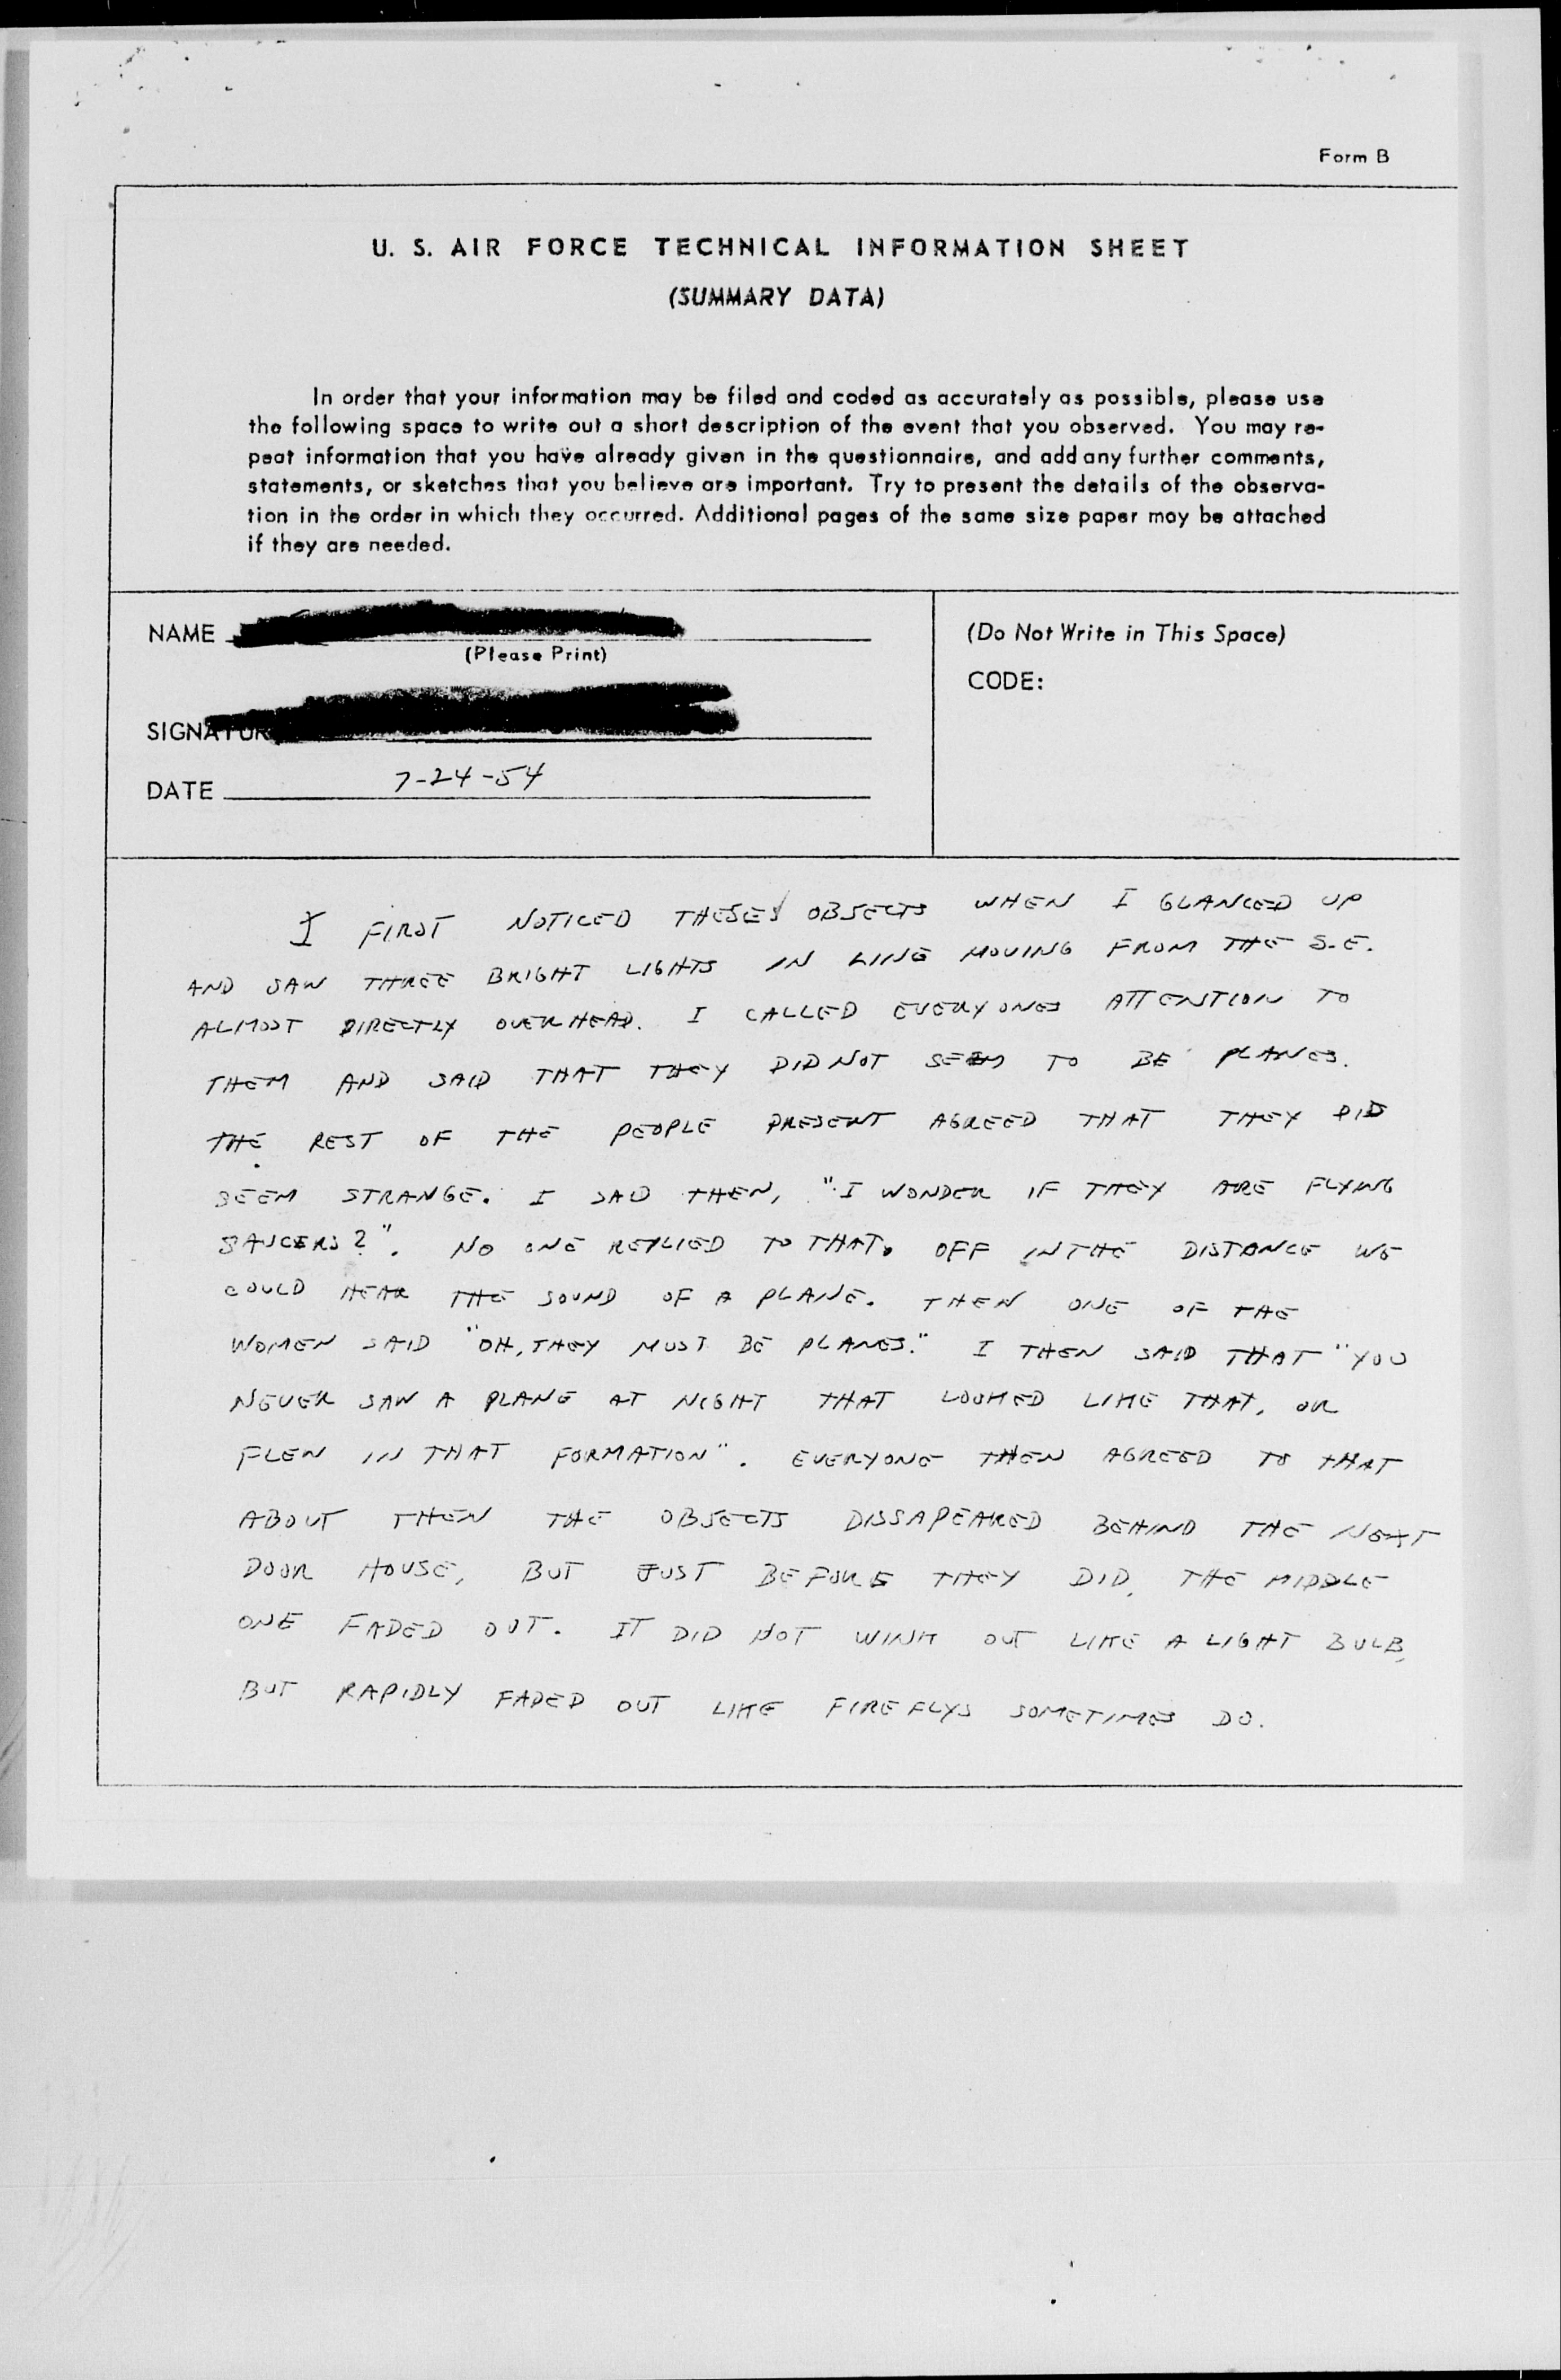 Form B
U. S. AIR FORCE TECHNICAL INFORMATION SHEET
(SUMMARY DATA)
In order that your information may be filed and coded as accurately as possible, please use
the following space to write out a short description of the event that you observed. You may re-
peat information that you have already given in the questionnaire, and add any further comments,
statements, or sketches that you believe are important. Try to present the details of the observa-
tion in the order in which they occurred. Additional pages of the same size paper may be attached
if they are needed.
NAME
(Please Print)
SIGNATUR
DATE 7-24-54
(Do Not Write in This Space)
CODE:
I FIRST NOTICED THESES OBJECTS WHEN I GLANCED UP
AND SAW THREE BRIGHT LIGHTS IN LINE MOVING FROM THE S.E.
ALMOST DIRECTLY OVERHEAD. I CALLED EVERYONES ATTENTION TO
THEM AND SAID THAT THEY DID NOT SEEM TO BE PLANES.
THE REST OF THE PEOPLE PRESENT AGREED THAT THEY DID
SEEM STRANGE. I SAID THEN, "I WONDER IF THEY ARE FLYING
SAUCERS?". NO ONE REPLIED TO THAT. OFF IN THE DISTANCE WE
COULD HEAR THE SOUND OF A PLANE. THEN ONE OF THE
WOMEN SAID "OH, THEY MUST BE PLANES." I THEN SAID THAT "YOU
NEVER SAW A PLANE AT NIGHT THAT LOOKED LIKE THAT, OR
FLEW IN THAT FORMATION". EVERYONE THEN AGREED TO THAT
ABOUT THEN THE OBJECTS DISSAPEARED BEHIND THE NEXT
DOOR HOUSE, BUT JUST BEFORE THEY DID, THE MIDDLE
ONE FADED OUT. IT DID NOT WINK OUT LIKE A LIGHT BULB,
BUT RAPIDLY FADED OUT LIKE FIREFLYS SOMETIMES DO.